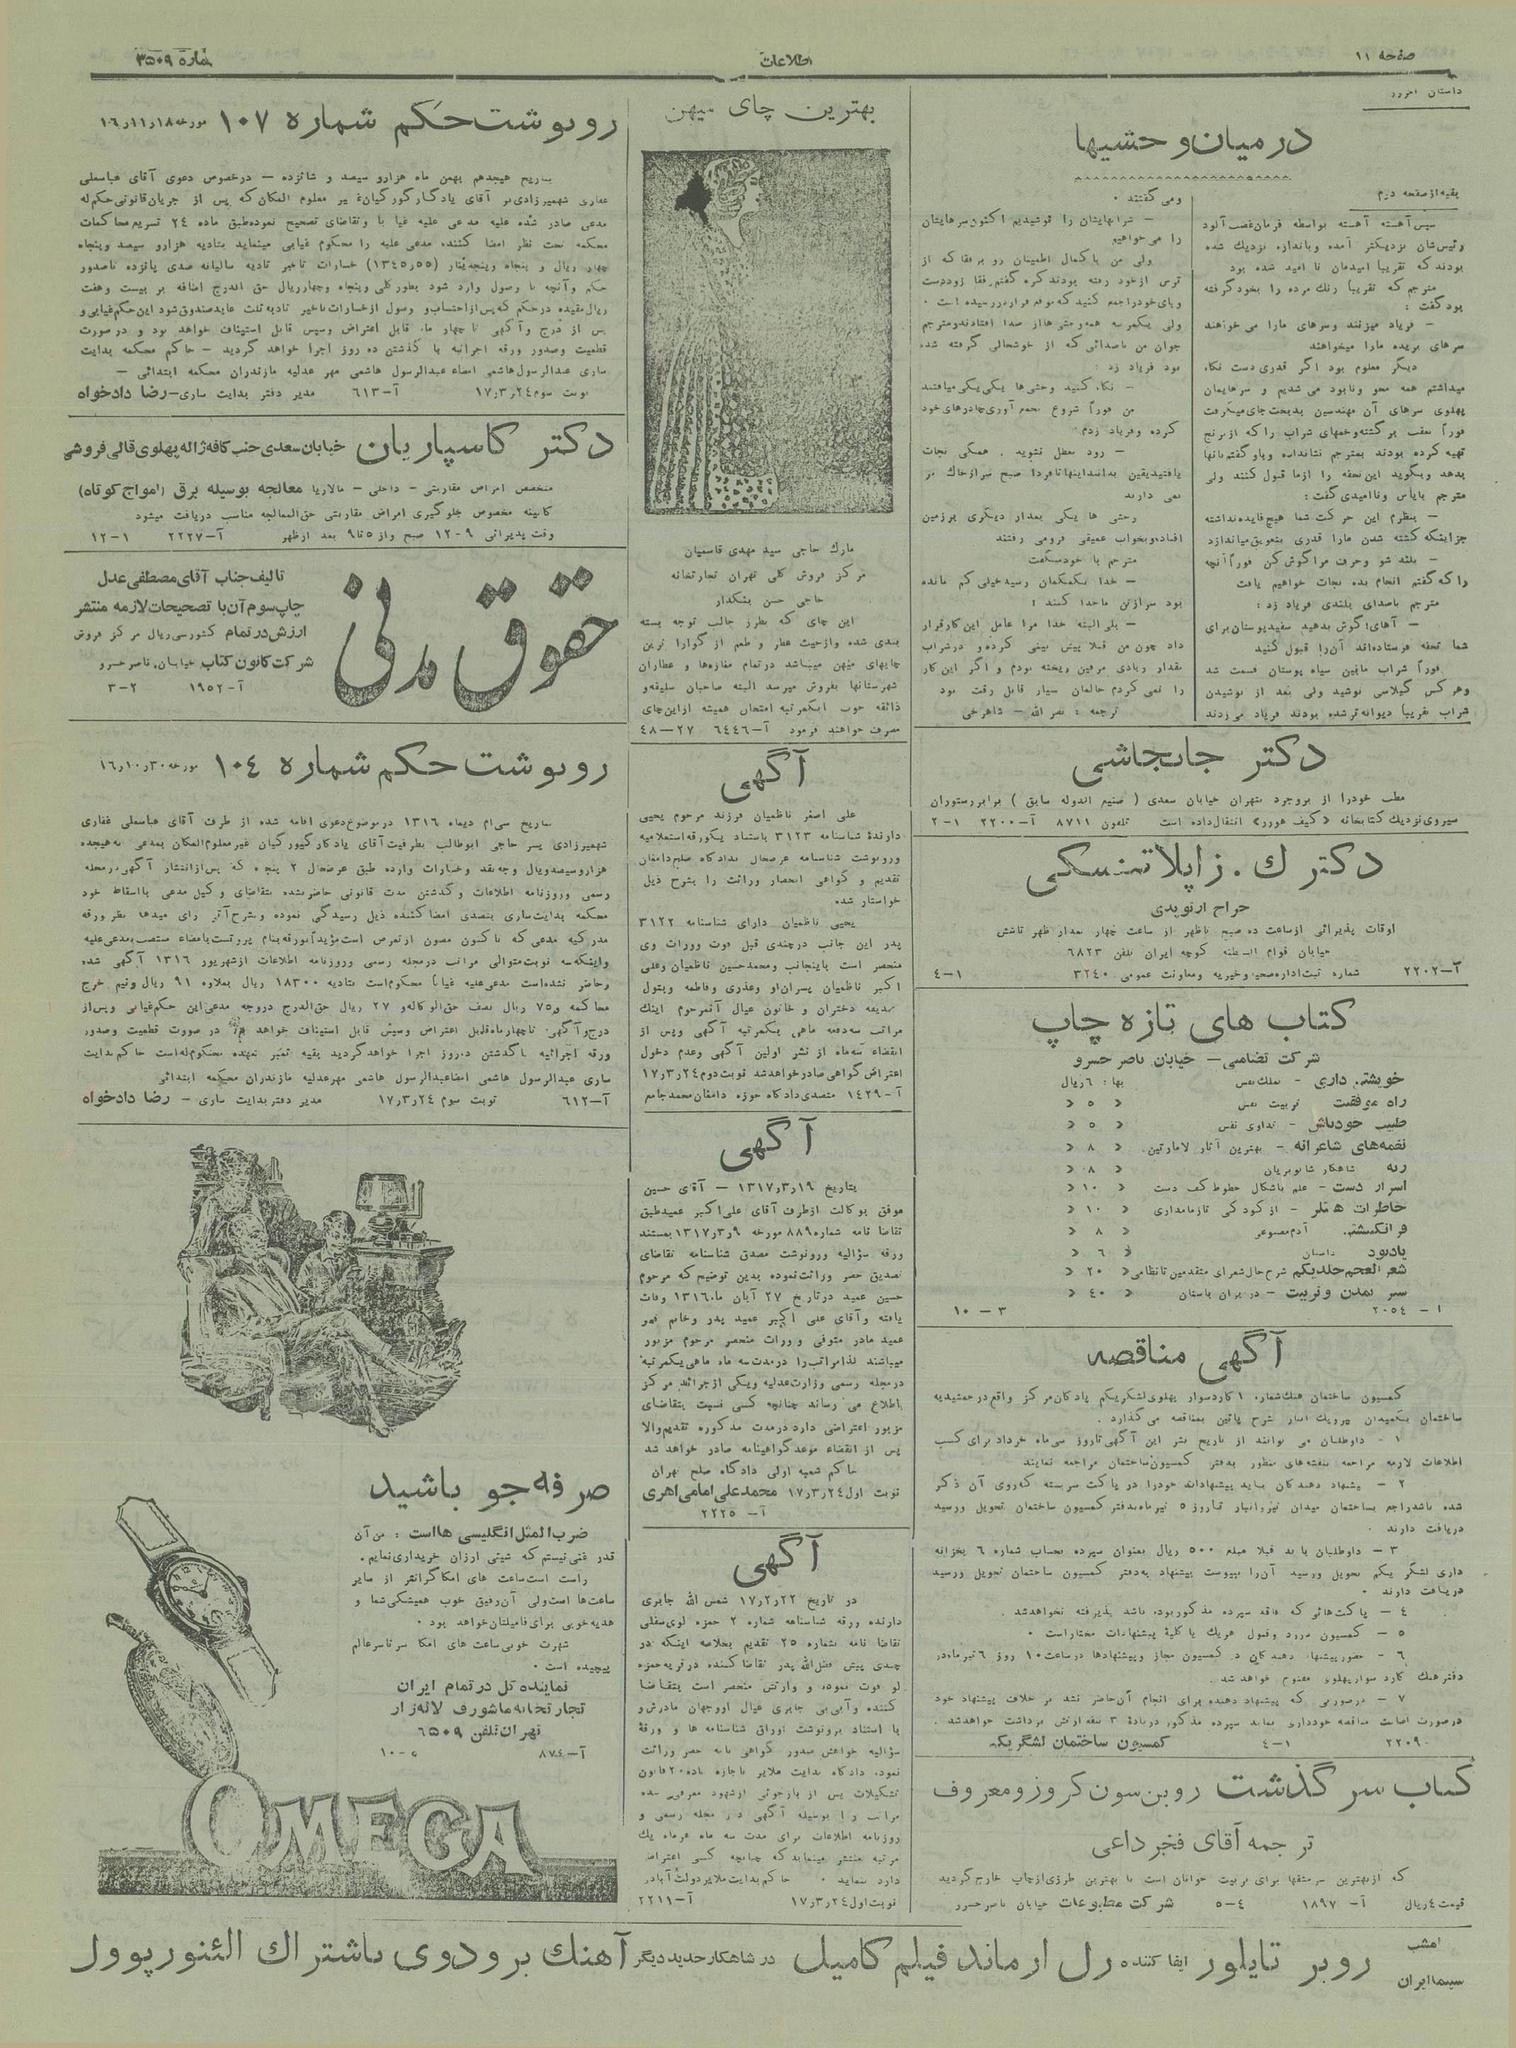 صفحه ۱۱
اطلاعات
شماره ۳۵۰۹
داستان امروز
در میان وحشیها
بقیه از صفحه دوم
سپس آهسته آهسته بواسطه فرمان غضب آلود
رئیس‌شان نزدیکتر آمده و باندازه نزدیك شده
بودند که تقریبا امیدمان نا امید شده بود
مترجم که تقریبا رنك مرده را بخود گرفته
بود گفت :
– فریاد میزنند وسرهای مارا می خواهند
سرهای بریده مارا میخواهند
دیگر معلوم بود اگر قدری دست نگاه
میداشتم همه محو ونابود می شدیم و سرهایمان
پهلوی سرهای آن مهندسین بدبخت جای میگرفت
فوراً عقب برگشته وخمهای شراب را که از برنج
تهیه کرده بودند بمترجم نشانداده وباو گفتم بانها
بدهد وبگوید این تحفه را ازما قبول کنند ولی
مترجم بایأس وناامیدی گفت :
– بنظرم این حرکت شما هیچ فایده نداشته
جزاینکه کشته شدن مارا قدری بتعویق میاندازد
– بلند شو وحرف مراگوش کن فوراً آنچه
را که گفتم انجام بده نجات خواهیم یافت
مترجم باصدای بلندی فریاد زد :
– آهای! گوش بدهید سفید پوستان برای
شما تحفه فرستاده‌اند آن‌را قبول کنید
فوراً شراب مابین سیاه پوستان قسمت شد
وهر کس گیلاسی نوشید ولی بعد از نوشیدن
شراب تقریبا دیوانه تر شده بودند فریاد می زدند
ومی گفتند .
– شرابهایتان را نوشیدیم اکنون سرهایتان
را می خواهیم
ولی من با کمال اطمینان رو برفقا که از
ترس از خود رفته بودند کرده گفتم رفقا زود دست
وپای خود را جمع کنید که موقع فرار رسیده است .
ولی یکمرتبه همه وحشی‌ها از صدا افتادند ومترجم
جوان من باصدائی که از خوشحالی گرفته شده
بود فریاد زد :
– نگاه کنید وحشی ها یکی یکی میافتند
من فوراً شروع بجمع آوری چادرهای خود
کرده وفریاد زدم :
– زود معطل نشوید . همگی نجات
یافتید یقین بدانند اینها تا فردا صبح سر از خاك بر
نمی دارند
وحشی ها یکی بعد از دیگری بر زمین
افتاده وبخواب عمیقی فرو می رفتند
مترجم با خود میگفت
– خدا بکمکمان رسید خیلی کم مانده
بود سر از تن ما جدا کنند :
– بلی البته خدا مرا عامل این کار قرار
داد چون من قبلا پیش بینی کرده و در شراب
مقدار زیادی مرفین ریخته بودم و اگر این کار
را نمی کردم حالمان بسیار قابل رقت بود
ترجمه : نصر الله – شاهرخی
دکتر جانجاشی
مطب خودرا از بروجرد بتهران خیابان سعدی ( صنیع الدوله سابق ) برابر رستوران
سیروی نزدیك کتابخانه «کیف هوور» انتقال داده است تلفون ۸۷۱۱ آ–۲۲۰۰ ۱–۲
دکتر ك . زاپلاتنسکی
جراح ارتوپدی
اوقات پذیرائی از ساعت ده صبح تا ظهر از ساعت چهار بعداز ظهر تا شش
خیابان قوام السلطنه کوچه ایران تلفن ۶۸۲۳
آ–۲۲۰۲ شماره ثبت اداره صحیه وخیریه و معاونت عمومی ۳۲۴۰ ۱–۴
کتاب های تازه چاپ
شرکت تضامنی – خیابان ناصر خسرو
خویشتن داری – تملك نفس بها : ۶ ریال
راه موفقیت تربیت نفس « ۵ «
طبیب خود باش – تداوی نفس « ۵ «
نغمه‌های شاعرانه – بهترین آثار لامارتین « ۸ «
رنه شاهکار شاتوبریان « ۸ «
اسرار دست – علم باشکال خطوط کف دست « ۱۰ «
خاطرات هتلر – از کودکی تا زمامداری « ۱۰ «
فرانکشتن آدم مصنوعی « ۸ «
یادبود داستان « ۶ «
شعر العجم جلد یکم شرح حال شعرای متقدمین تا نظامی « ۲۰ «
سیر تمدن و تربیت – در ایران باستان « ۴۰ «
۱ – ۲۰۵۴ ۳ – ۱۰
آگهی مناقصه
کمسیون ساختمان هنك شماره ۱ کارد سوار پهلوی لشکر یکم پادگان مرکز واقع در جمشیدیه
ساختمان یکمیدان تیر و یك انبار شرح پائین بمناقصه می گذارد .
۱ – داوطلبان می توانند از تاریخ نشر این آگهی تا روز سی‌ماه خرداد برای کسب
اطلاعات لازمه مراجعه بنقشه‌های منظور بدفتر کمسیون ساختمان مراجعه نمایند
۲ – پیشنهاد دهندکان باید پیشنهادات خودرا در پاکت سربسته که روی آن ذکر
شده باشد راجع بساختمان میدان تیر وانبار تا روز ۵ تیرماه بدفتر کمسیون ساختمان تحویل ورسید
دریافت دارند .
۳ – داوطلبان باید قبلا مبلغ ۵۰۰ ریال بعنوان سپرده بحساب شماره ۶ بخزانه
داری لشگر یکم تحویل ورسید آن‌را بپیوست پیشنهاد به دفتر کمسیون ساختمان تحویل ورسید
دریافت دارند .
۴ – پاکت‌هائی که فاقد سپرده مذکور بوده باشد پذیرفته نخواهد شد .
۵ – کمسیون در رد وقبول هریك یا کلیهٔ پیشنهادات مختار است .
۶ – حضور پیشنهاد دهندکان در کمسیون مجاز و پیشنهادها در ساعت ۱۰ روز ۶ تیرماه در
دفتر هنك کارد سوار پهلوی مفتوح خواهد شد .
۷ – در صورتی که پیشنهاد دهنده برای انجام آن حاضر نشد بر خلاف پیشنهاد خود
در صورت اصابت مناقصه خودداری نماید سپرده مذکور در مادهٔ ۳ بنفع ارتش برداشت خواهد شد .
۲۲۰۹۰ ۱–۴ کمسیون ساختمان لشگر یك
کتاب سر گذشت روبن سون کروزو معروف
تر جمه آقای فخر داعی
که از بهترین سرمشقها برای تربیت جوانان است با بهترین طرزی از چاپ خارج گردید
قیمت ۴ ریال آ– ۱۸۹۷ ۴–۵ شرکت مطبوعات خیابان ناصر خسرو
بهترین چای میهن
مارك حاجی سید مهدی قاسمیان
مرکز فروش کلی تهران تجارتخانه
حاجی حسن بشکدار
این چای که بطرز جالب توجه بسته
بندی شده وازحیث عطر و طعم از گوارا ترین
چایهای میهن میباشد در تمام مغازه‌ها و عطاران
شهرستانها بفروش میرسد البته صاحبان سلیقه و
ذائقه خوب اینکمرتبه امتحان همیشه از این چای
مصرف خواهند فرمود آ–۶۴۴۶ ۲۷–۴۸
آگهی
علی اصغر ناظمیان فرزند مرحوم یحیی
دارندهٔ شناسنامه ۳۱۲۳ باستناد یکورقه استعلامیه
ورونوشت شناسنامه عرضحال بدادگاه صلح دامغان
تقدیم و گواهی انحصار وراثت را بشرح ذیل
خواستار شده
یحیی ناظمیان دارای شناسنامه ۳۱۲۲
پدر این جانب در چندی قبل فوت و وراث وی
منحصر است باینجانب ومحمد حسین ناظمیان وعلی
اکبر ناظمیان پسران او وعذری و فاطمه وبتول
بدیعه دختران و خاتون عیال آنمرحوم اینك
مراتب سه دفعه ماهی یکمرتبه آگهی وپس از
انقضاء سه ماه از نشر اولین آگهی وعدم دخول
اعتراض گواهی صادر خواهد شد نوبت دوم ۱۷٫۳٫۲۴
آ–۱۴۲۹ متصدی دادگاه حوزه دامغان محمد جامع
آگهی
بتاریخ ۱۳۱۷٫۳٫۱۹ – آقای حسین
موفق بوکالت از طرف آقای علی اکبر عمید طبق
تقاضا نامه شماره ۸۸۹ مورخه ۱۳۱۷٫۳٫۹ بمستند
ورقه سؤالیه ورونوشت مصدق شناسنامه تقاضای
تصدیق حصر وراثت نموده بدین توضیح که مرحوم
حسین عمید در تاریخ ۲۷ آبان ماه ۱۳۱۶ وفات
یافته وآقای علی اکبر عمید پدر وخانم قمر
عمید مادر متوفی و وراث منحصر مرحوم مزبور
میباشند لذا مراتب را در مدت سه ماه ماهی یکمرتبه
در مجله رسمی وزارت عدلیه و یکی از جرائد مرکز
اطلاع می رساند چنانچه کسی نسبت بتقاضای
مزبور اعتراضی دارد درمدت مذکوره تقدیم والا
پس از انقضاء موعد گواهینامه صادر خواهد شد
حاکم شعبه اولی دادگاه صلح تهران
نوبت اول ۱۷٫۳٫۲۴ محمدعلی امامی اهری
آ– ۲۲۲۵
آگهی
در تاریخ ۱۷٫۲٫۲۲ شمس الله جابری
دارنده ورقه شناسنامه شماره ۲ حمزه لوی سفلی
تقاضا نامه بشماره ۲۵ تقدیم بخلاصه اینکه در
چندی پیش فضل الله پدر تقاضا کننده در قریه حمزه
لو فوت نموده و وارثش منحصر است بتقاضا
کننده وآبی بی جابری عیال او وجهان مادرش و
با استناد برونوشت اوراق شناسنامه ها و ورقهٔ
سؤالیه خواهش صدور گواهی نامه حصر وراثت
نموده دادگاه بدایت ملایر باجازه ماده ۲۰ قانون
تشکیلات پس از بازجوئی از شهود معرفی شده
مراتب را بوسیله آگهی در مجله رسمی و
روزنامه اطلاعات برای مدت سه ماه هرماه یك
مرتبه منتشر مینماید که چنانچه کسی اعتراض
دارد بنماید . حاکم بدایت ملایر دولت آبادی
نوبت اول ۱۷٫۳٫۲۴ آ–۲۲۱۱
رونوشت حکم شماره ۱۰۷ مورخه ۱۶٫۱۱٫۱۸
بتاریخ هیجدهم بهمن ماه هزارو سیصد و شانزده – درخصوص دعوی آقای عباسعلی
غفاری شهمیرزادی بر آقای یادگار گورکیان غیر معلوم المکان که پس از جریان قانونی حکم له
مدعی صادر شده علیه مدعی علیه غیابا وتقاضای تصحیح نموده طبق ماده ۲۴ تسریع محاکمات
محکمه تحت نظر امضا کننده مدعی علیه را محکوم غیابی مینماید بتادیه هزارو سیصد وپنجاه
چهار ریال و پنجاه وپنجدینار (۱۳۴۵٫۵۵) خسارات تاخیر تادیه سالیانه صدی پانزده تاصدور
حکم وآنچه تا وصول وارد شود بطورکلی وپنجاه وچهار ریال حق الدرج اضافه بر بیست وهفت
ریال مقیده در حکم که پس از احتساب و وصول از خسارات تاخیر تادیه ثلث عاید صندوق شود این حکم غیابی و
پس از درج وآگهی تا چهار ماه قابل اعتراض وسپس قابل استیناف خواهد بود و درصورت
قطعیت وصدور ورقه اجرائیه با گذشتن ده روز اجرا خواهد گردید – حاکم محکمه بدایت
ساری عبدالرسول هاشمی امضاء عبدالرسول هاشمی مهر عدلیه مازندران محکمه ابتدائی –
نوبت سوم ۱۷٫۳٫۲۴ آ–۶۱۳ مدیر دفتر بدایت ساری – رضا دادخواه
دکتر کاسپاریان خیابان سعدی جنب کافه ژاله پهلوی قالی فروشی
متخصص امراض مقاربتی – داخلی – مالاریا معالجه بوسیله برق (امواج کوتاه)
کابینه مخصوص جلوگیری امراض مقاربتی حق‌المعالجه مناسب دریافت میشود
وقت پذیرائی ۹–۱۲ صبح واز ۵ تا ۹ بعد ازظهر آ–۲۲۲۷ ۱–۱۲
حقوق مدنی
تالیف جناب آقای مصطفی عدل
چاپ سوم آن با تصحیحات لازمه منتشر
ارزش در تمام کشور سی ریال مرکز فروش
شرکت کانون کتاب خیابان ناصر خسرو
آ–۱۹۵۲ ۲–۳
رونوشت حکم شماره ۱۰۴ مورخه ۱۶٫۱۰٫۳۰
بتاریخ سی‌ام دیماه ۱۳۱۶ در موضوع دعوی اقامه شده از طرف آقای عباسعلی غفاری
شهمیرزادی پسر حاجی ابوطالب بطرفیت آقای یادگار گیورکیان غیر معلوم المکان بمدعی به هیجده
هزار وسیصد ریال وجه نقد وخسارات وارده طبق عرضحال ۲ پنجه که پس از انتشار آگهی در مجله
رسمی وروزنامه اطلاعات وگذشتن مدت قانونی حاضر نشده بتقاضای وکیل مدعی بااسقاط خود
محکمه بدایت ساری بتصدی امضا کننده ذیل رسیدگی نموده وبشرح آتی رای میدهد بنظر ورقه
مدرکیه مدعی که تا کنون مصون از تعرض است مؤید آن ورقه بنام پروتست بامضاء منتصب بمدعی علیه
واینکه سه نوبت متوالی مراتب در مجله رسمی وروزنامه اطلاعات از شهریور ۱۳۱۶ آگهی شده
وحاضر نشده است مدعی علیه غیابا محکوم است بتادیه ۱۸۳۰۰ ریال بعلاوه ۹۱ ریال ونیم خرج
محاکمه و۷۵ ریال نصف حق الوکاله و ۲۷ ریال حق‌الدرج دروجه مدعی این حکم غیابی وپس از
درج وآگهی تا چهار ماه قابل اعتراض وسپس قابل استیناف خواهد بود در صورت قطعیت وصدور
ورقه اجرائیه با گذشتن ده روز اجرا خواهد گردید بقیه تمبر بعهده محکوم له است حاکم بدایت
ساری عبدالرسول هاشمی امضا عبدالرسول هاشمی مهر عدلیه مازندران محکمه ابتدائی
آ–۶۱۲ نوبت سوم ۱۷٫۳٫۲۴ مدیر دفتر بدایت ساری – رضا دادخواه
صرفه جو باشید
ضرب المثل انگلیسی ها است : من آن
قدر غنی نیستم که شیئی ارزان خریداری نمایم .
راست است ساعت های امگا گرانتر از سایر
ساعت‌ها است ولی آن رفیق خوب همیشگی شما و
هدیه خوبی برای فامیلتان خواهد بود .
شهرت خوبی ساعت های امگا سر تا سر عالم
پیچیده است .
نماینده کل در تمام ایران
تجارتخانه ماشورف لاله‌زار
تهران تلفن ۶۵۰۹
آ–۸۷۴ ۵–۱۰
OMEGA
امشب
سینما ایران
روبر تایلور ایفا کننده رل ارماند فیلم کامیل در شاهکار جدید دیگر آهنك برودوی باشتراك الئنور پوول